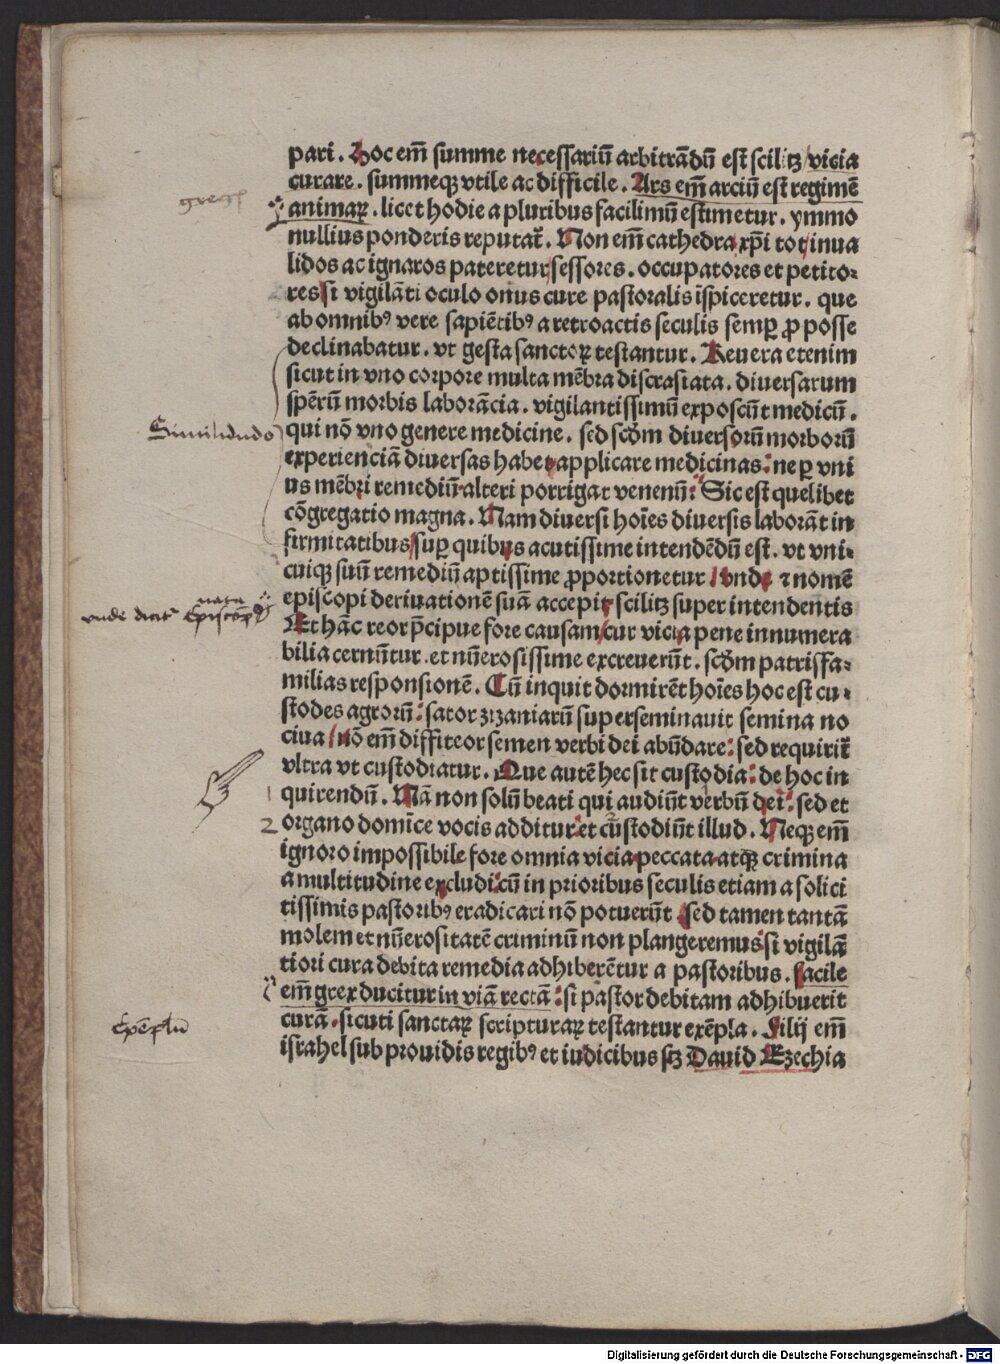 pari. Hoc em̄ summe necessariū arbitrādū est scilitꝫ vicia
curare. summeqꝫ vtile ac difficile. Ars em̄ arciū est regimē
gregꝭ
animaꝝ. licet hodie a pluribus facilimū estimetur. ymmo
nullius ponderis reputat᷑. Non em̄ cathedra xp̄i tot inua
lidos ac ignaros pateretur sessores. occupatores et petito⸗
res si vigilāti oculo onus cure pastoralis īspiceretur. que
ab omnibꝰ vere sapiētibꝰ a retroactis seculis semꝑ ꝓ posse
declinabatur. vt gesta sanctoꝝ testantur. Reuera etenim
sicut in vno corpore multa mēbra discrasiata. diuersarum
sperūm morbis laborācia. vigilantissimū exposcūt medicū.
Similitudo
qui nō vno genere medicine. sed scd̄m diuersorū morborū
experienciā diuersas habet applicare medicinas: ne ꝑ vni
us mēbri remediū alteri porrigat venenū: Sic est quelibet
cōgregatio magna. Nam diuersi hoīes diuersis laborāt in
firmitatibus suꝑ quibus acutissime intendēdū est. vt vni⸗
cuiqꝫ suū remediū aptissime ꝓportionetur / vnde ⁊ nomē
vnde dicit᷑ Episcop
episcopi deriuationē suā accepit scilitꝫ super intendentis
Et hāc reor p̄cipue fore causam cur vicia pene innumera
bilia cernūtur. et nūerosissime excreuerūt. scd̄m patrisfa⸗
milias responsionē. Cū inquit dormirēt hoīes hoc est cu⸗
stodes agrorū: sator zizaniarū superseminauit semina no
ciua / nō em̄ diffiteor semen verbi dei abūdare: sed requirit᷑
vltra vt custodiatur. Que autē hec sit custodia: de hoc in
quirendū. Nā non solū beati qui audiūt verbū dei: sed et
2
organo domīce vocis additur: et cūstodiūt illud. Neqꝫ em̄
ignoro impossibile fore omnia vicia peccata atqꝫ crimina
a multitudine excludi: cū in prioribus seculis etiam a solici
tissimis pastoribꝰ eradicari nō potuerūt sed tamen tantā
molem et nūerositatē criminū non plangeremus si vigilā
tiori cura debita remedia adhiberētur a pastoribus. facile
em̄ grex ducitur in viā rectā: si pastor debitam adhibuerit
Exēplū
curā. sicuti sanctaꝝ scripturaꝝ testantur exēpla. Filij em̄
israhel sub prouidis regibꝰ et iudicibus scꝫ Dauid Ezechia
Digitalisierung gefördert durch die Deutsche Forschungsgemeinschaft - DFG